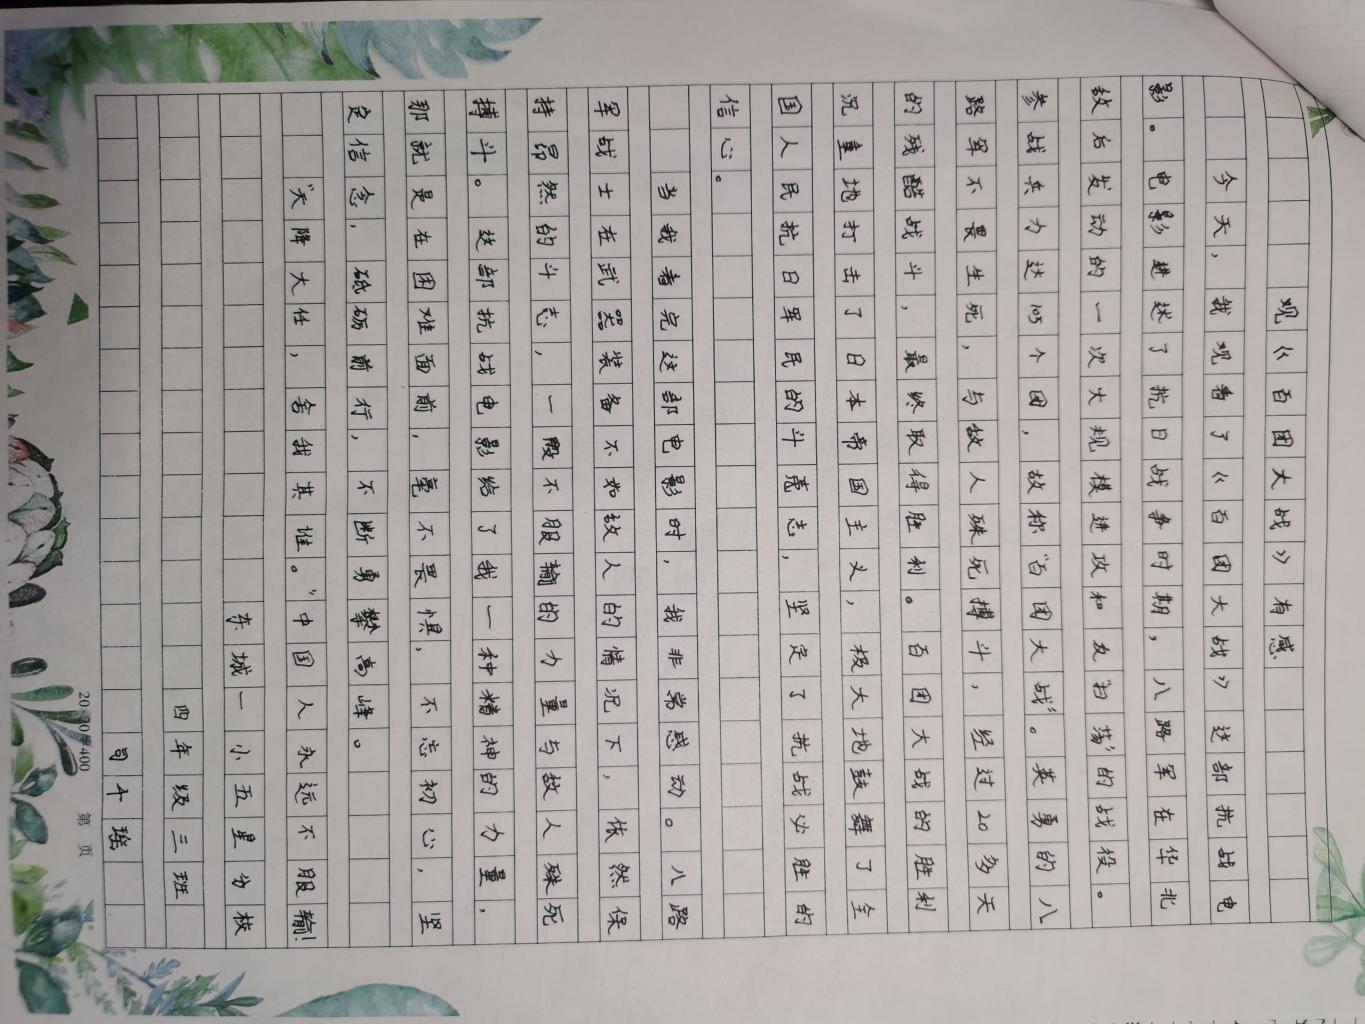 观《百团大战》有感
今天，我观看了《百团大战》这部抗战电
影。电影进述了抗日战争时期，八路军在华北
敌后发动的一次大规模进攻和反“扫荡”的战役。
参战兵力达105个团，故称“百团大战”。英勇的八
路军不畏生死，与敌人殊死搏斗，经过20多天
的残酷战斗，最终取得胜利。百团大战的胜利
沉重地打击了日本帝国主义，极大地鼓舞了全
国人民抗日军民的斗志，坚定了抗战必胜的
信心。
当我看完这部电影时，我非常感动。八路
军战士在武器装备不如敌人的情况下，依然保
持昂然的斗志，一股不服输的力量与敌人殊死
搏斗。这部抗战电影给了我一种精神的力量，
那就是在困难面前，毫不畏惧，不忘初心，坚
定信念，砥砺前行，不断勇攀高峰。
“天降大任，舍我其谁。”中国人永远不服输！
东城一小五星分校
四年级三班
司十瑶
20×20=400 第 页